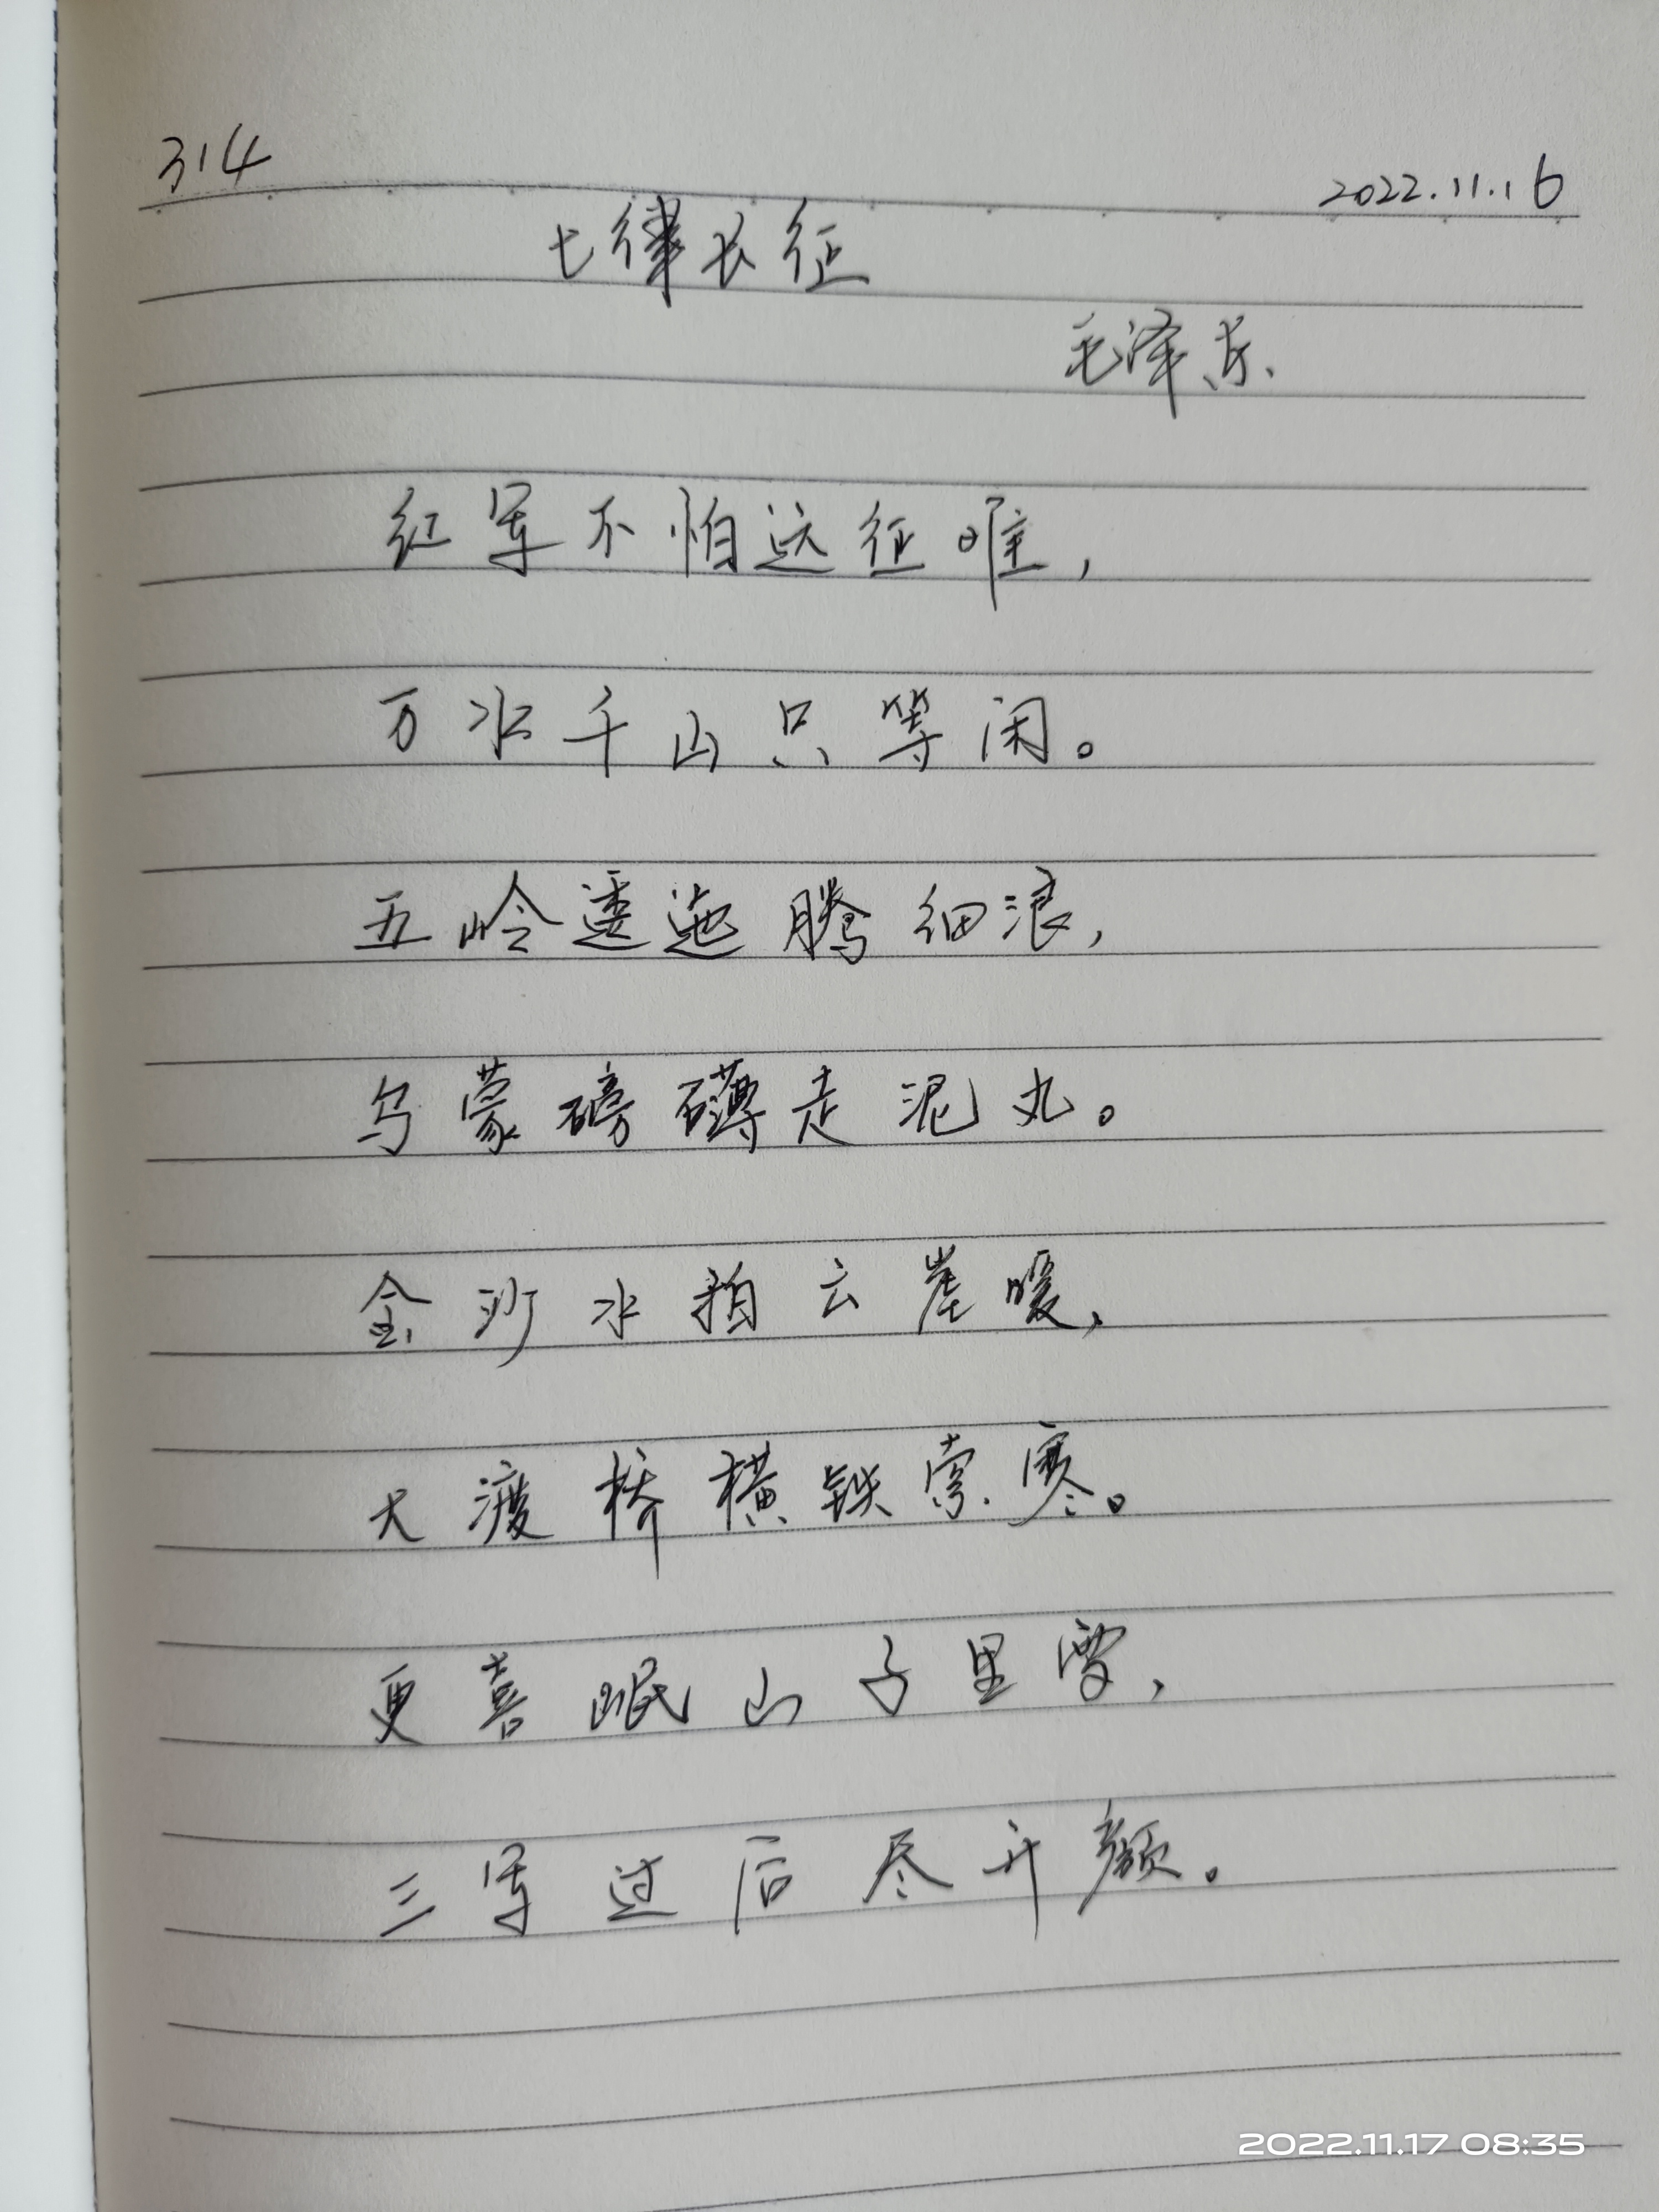 314
2022.11.16
七律长征
毛泽东
红军不怕远征唯，
万水千山只等闲。
五岭逶迤腾细浪，
乌蒙磅礴走泥丸。
金沙水拍云崖暖，
大渡桥横铁索寒。
更喜岷山子里雪，
三军过后尽开颜。
2022.11.17 08:35